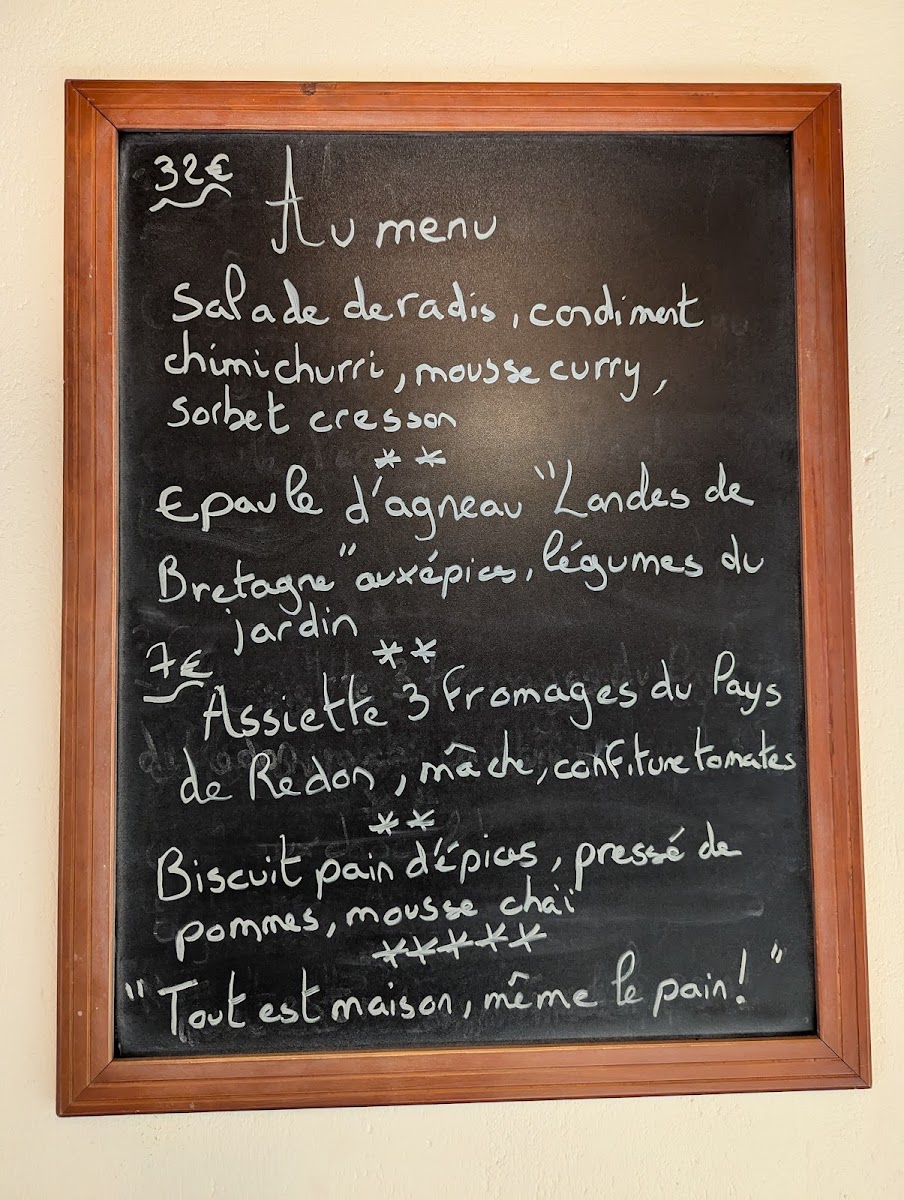 32€
Au menu
Salade de radis, condiment
chimichurri, mousse curry,
sorbet cresson
**
Epaule d'agneau "Landes de
Bretagne" aux épices, légumes du
jardin
**
7€
Assiette 3 fromages du Pays
de Redon, mâche, confiture tomates
**
Biscuit pain d'épices, pressé de
pommes, mousse chaï
*****
"Tout est maison, même le pain!"